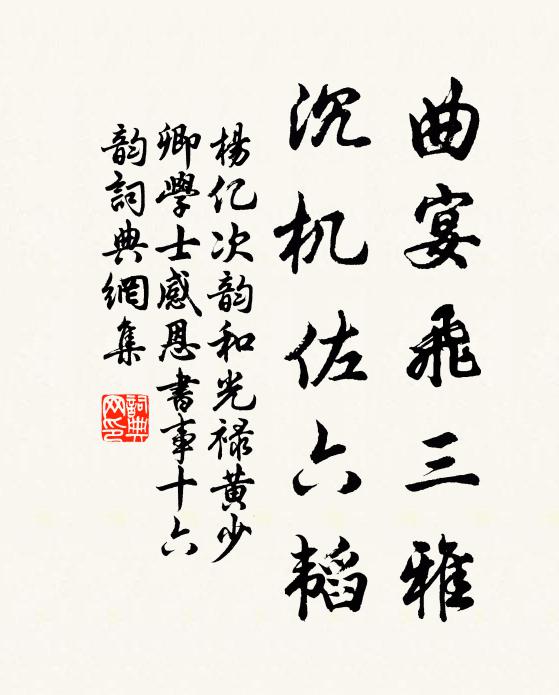 曲宴飛三雅
沉机佐六韬
楊亿次韵和光禄黄少
卿學士感恩書事十六
韵詞典網集
詞典网印